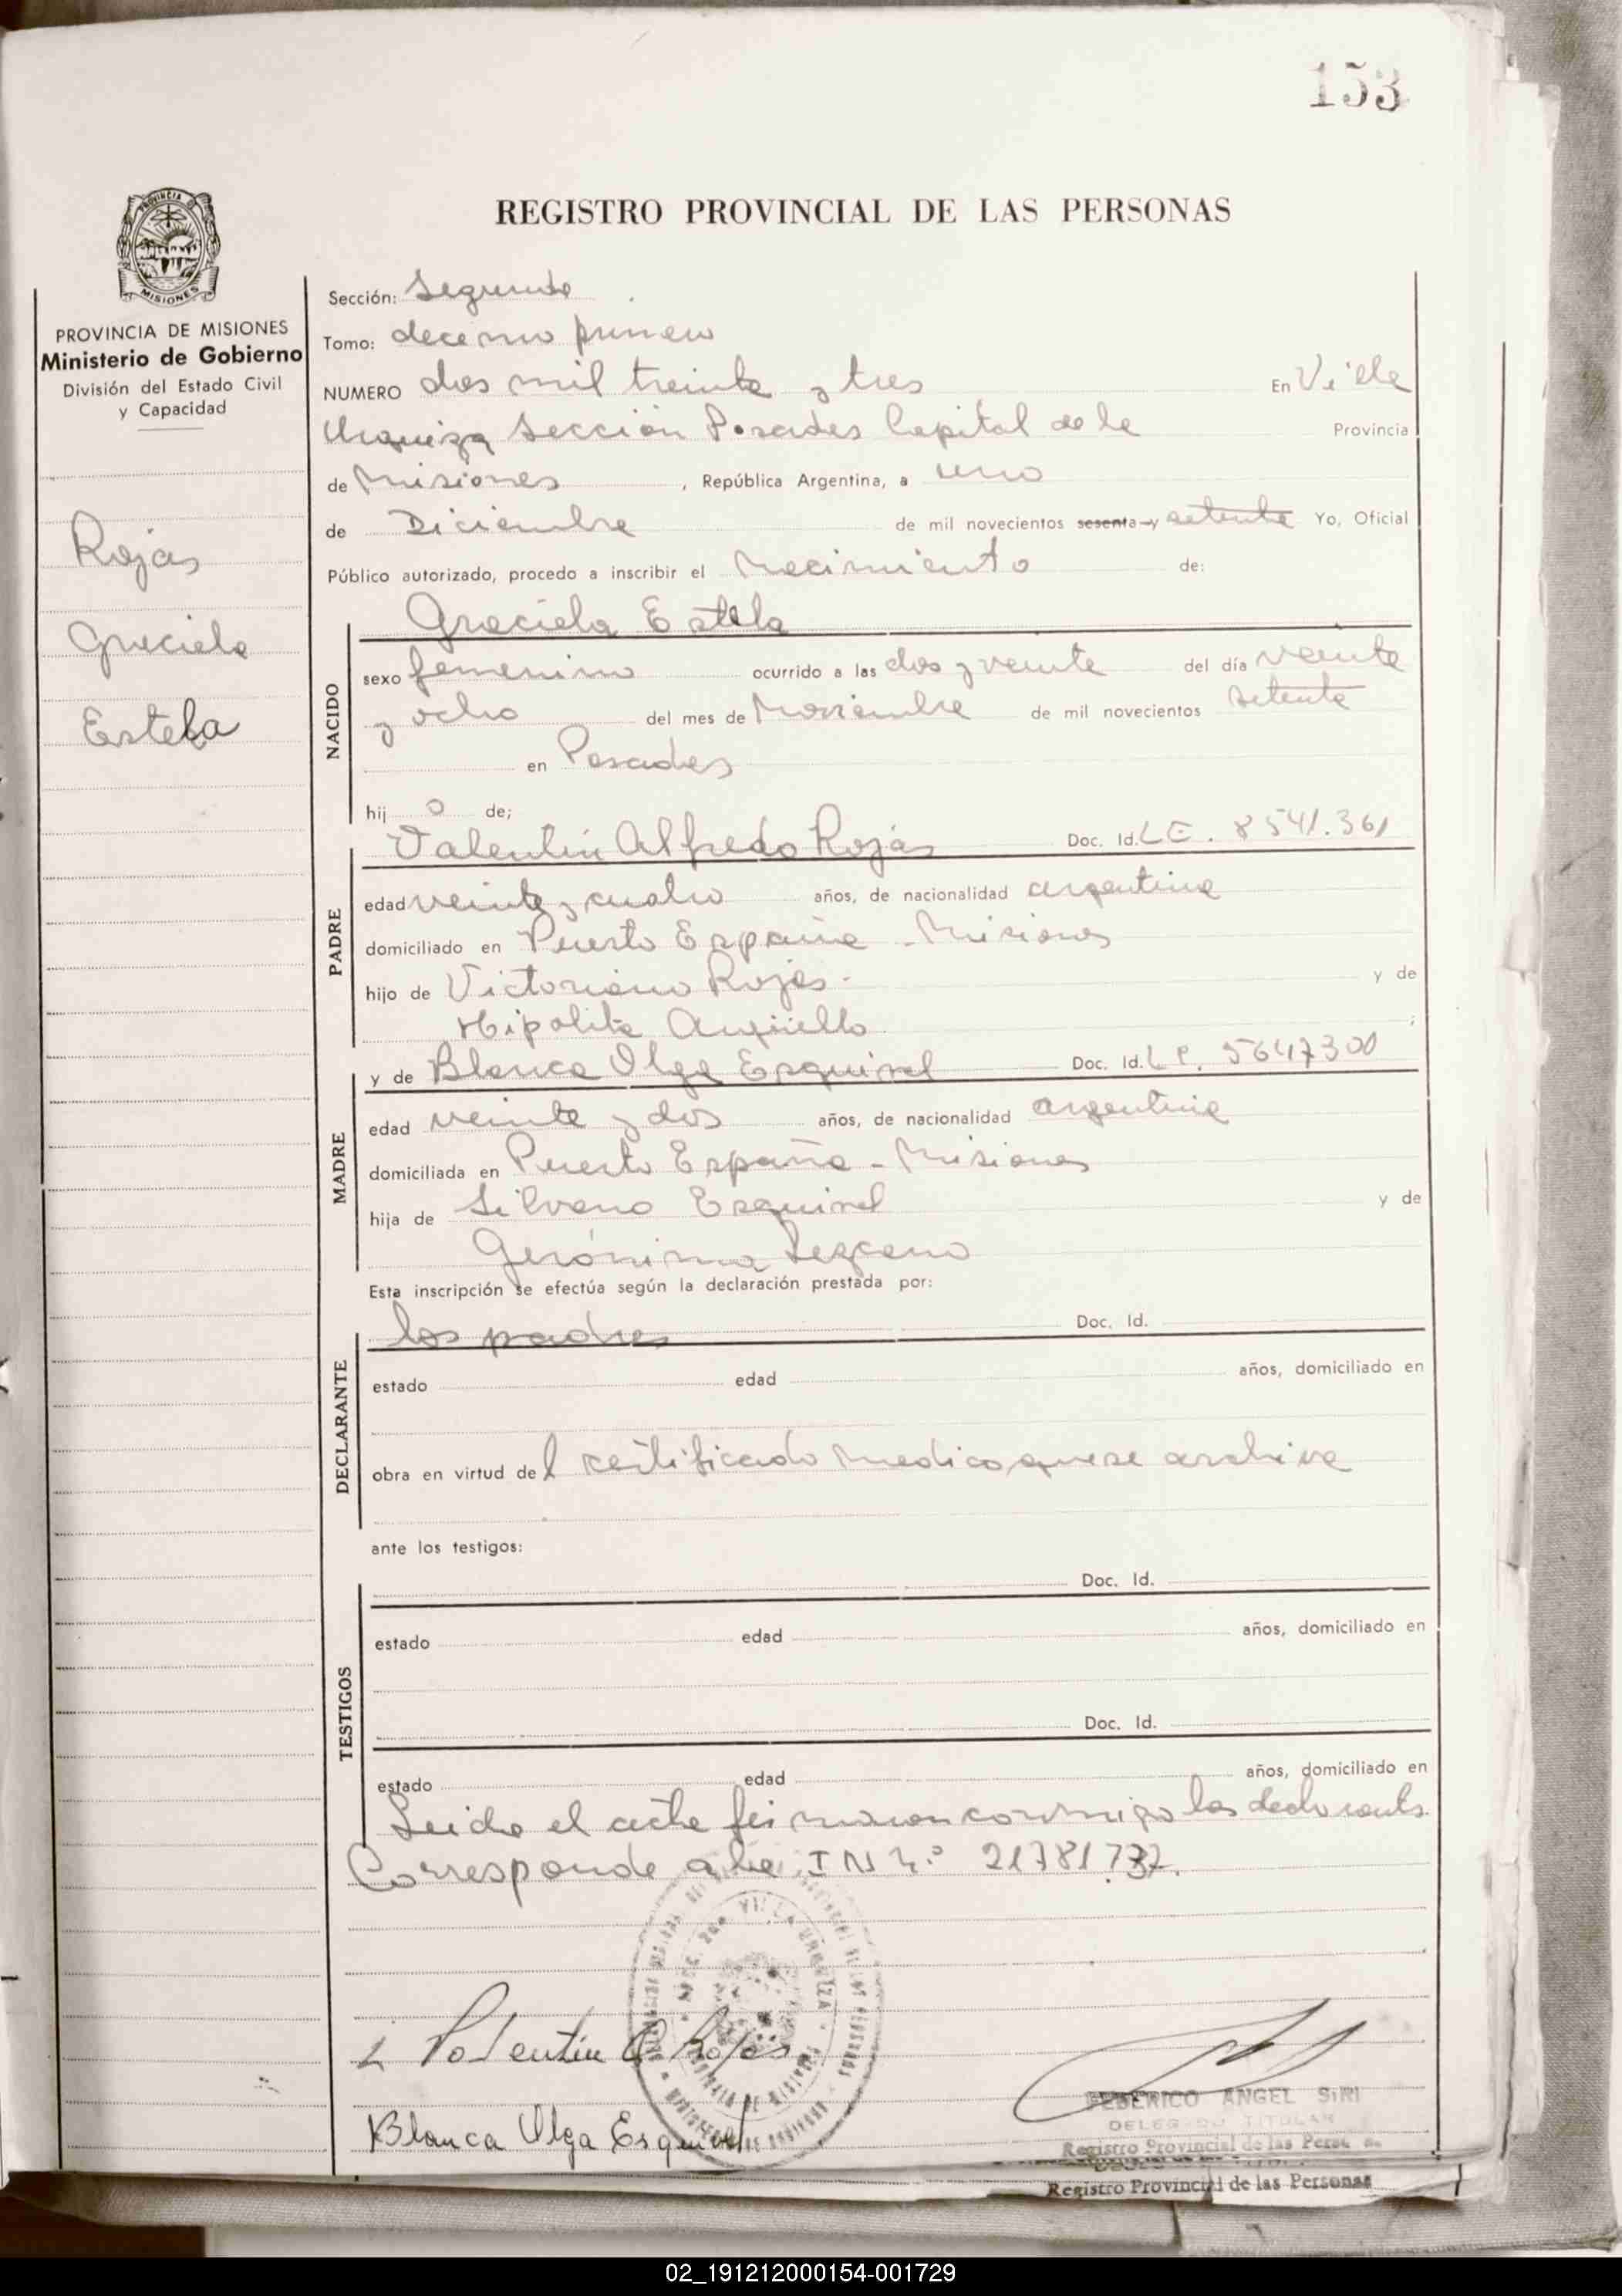 153
REGISTRO PROVINCIAL DE LAS PERSONAS
PROVINCIA DE MISIONES
PROVINCIA DE MISIONES
Ministerio de Gobierno
División del Estado Civil
y Capacidad
Rojas
Graciela
Estela
Sección: Segunda
Tomo: decemo primero
NUMERO dos mil treinta y tres En Villa
Urquiza Sección Posadas Capital de la Provincia
de Misiones, República Argentina, a uno
de Diciembre de mil novecientos sesenta y setenta Yo, Oficial
Público autorizado, procedo a inscribir el Nacimiento de:
Graciela Estela
NACIDO
sexo femenino ocurrido a las dos y veinte del día veinte
y ocho del mes de Noviembre de mil novecientos setenta
en Posadas
hij o de;
Valentín Alfredo Rojas Doc. Id. L E. 8541.361
PADRE
edad veinte y cuatro años, de nacionalidad argentina
domiciliado en Puerto España - Misiones
hijo de Victoriano Rojas - y de
Hipolita Argüello ;
y de Blanca Olga Esquivel Doc. Id. L C. 5647300
MADRE
edad veinte y dos años, de nacionalidad argentina
domiciliada en Puerto España - Misiones
hija de Silvano Esquivel y de
Gerónima Lezcano
Esta inscripción se efectúa según la declaración prestada por:
los padres Doc. Id.
DECLARANTE
estado edad años, domiciliado en
obra en virtud de l certificado medico que se archiva
ante los testigos:
Doc. Id.
TESTIGOS
estado edad años, domiciliado en
Doc. Id.
estado edad años, domiciliado en
Leida el acta firmaron conmigo los declarants.
Corresponde a la I N n.º 21781.737.
Valentín A Rojas
Blanca Olga Esquivel
VILLA URQUIZA
FEDERICO ANGEL SIRI
DELEGADO TITULAR
Registro Provincial de las Perso
Registro Provincial de las Personas
02_191212000154-001729